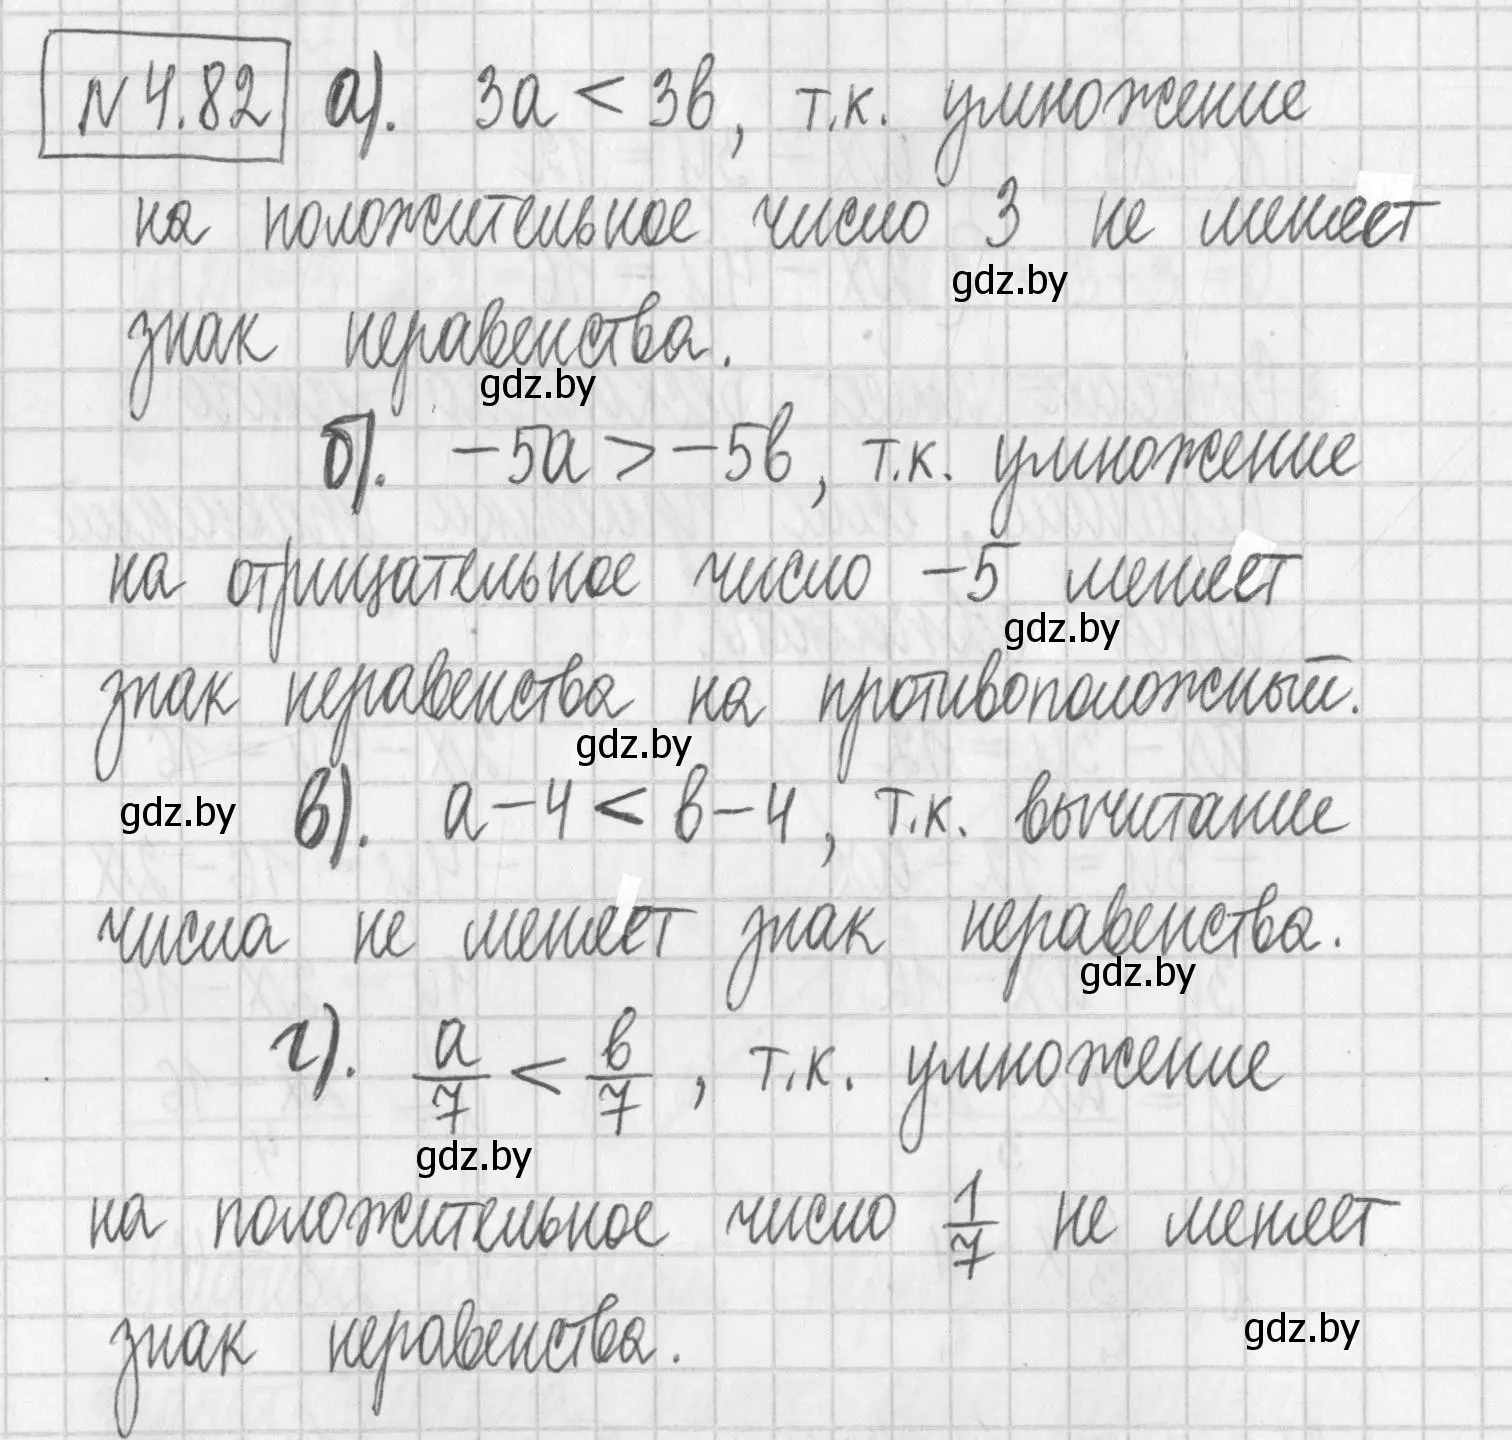 №4.82 а). 3a < 3b, т.к. умножение
на положительное число 3 не меняет
gdz.by
знак неравенства.
gdz.by
б). -5a > -5b, т.к. умножение
на отрицательное число -5 меняет
gdz.by
знак неравенства на противоположный.
gdz.by
gdz.by в). a-4 < b-4, т.к. вычитание
числа не меняет знак неравенства.
gdz.by
г). a/7 < b/7, т.к. умножение
gdz.by
на положительное число 1/7 не меняет
gdz.by
знак неравенства.